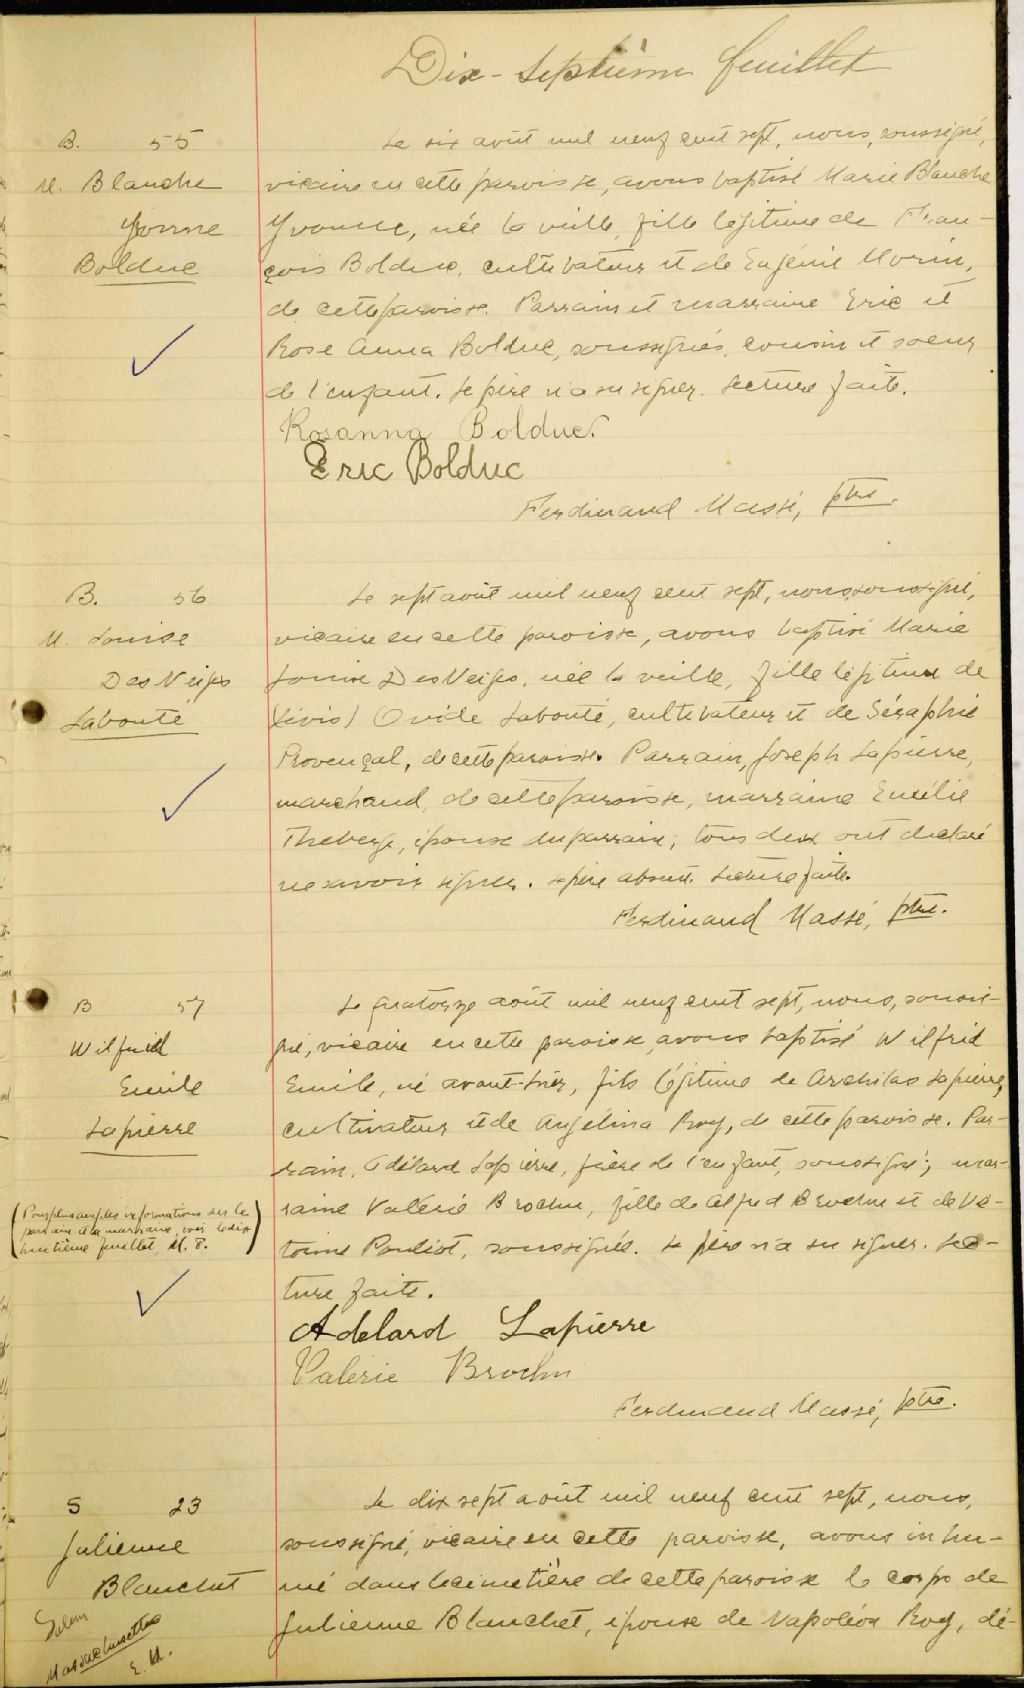 Dix-Septième feuillet
B. 55
M. Blanche
Yvonne
Bolduc
Le six août mil neuf cent sept, nous, soussigné,
vicaire en cette paroisse, avons baptisé Marie Blanche
Yvonne, née la veille, fille légitime de Fran-
çois Bolduc, cultivateur et de Eugénie Morin,
de cette paroisse. Parrain et marraine Eric et
Rose Anna Bolduc, soussignés, cousin et soeur
de l'enfant. Le père n'a su signer. Lecture faite.
Rosanna Bolduc.
Eric Bolduc
Ferdinand Massé, ptre.
B. 56
M. Louise
Des Neiges
Labonté
Le sept août mil neuf cent sept, nous, soussigné,
vicaire en cette paroisse, avons baptisé Marie
Louise Des Neiges, née la veille, fille légitime de
(Lévis) Ovide Labonté, cultivateur et de Séraphie
Provençal, de cette paroisse. Parrain, Joseph Lapierre,
marchand, de cette paroisse, marraine Emélie
Theberge, épouse du parrain; tous deux ont déclaré
ne savoir signer. Le père absent. Lecture faite.
Ferdinand Massé, ptre.
B 57
Wilfrid
Emile
Lapierre
(Pour plus amples informations sur le
parrain et la marraine, voir le dix
huitième feuillet,
Le quatorze août mil neuf cent sept, nous, soussi-
gné, vicaire en cette paroisse, avons baptisé Wilfrid
Emile, né avant-hier, fils légitime de Archilas Lapierre,
cultivateur et de Angelina Roy, de cette paroisse. Par-
rain, Adélard Lapierre, frère de l'enfant, soussigné; mar-
raine Valérie Brochu, fille de Alfred Brochu et de Vi-
toine Pouliot, soussignée. Le père n'a su signer. Lec-
ture faite.
Adelard Lapierre
Valérie Brochu
Ferdinand Massé, ptre.
S 23
Julienne
Blanchet
Salem
Massachusetts
E. U.
Le dix sept août mil neuf cent sept, nous,
soussigné, vicaire en cette paroisse, avons inhu-
mé dans le cimetière de cette paroisse le corps de
Julienne Blanchet, épouse de Napoléon Roy, dé-